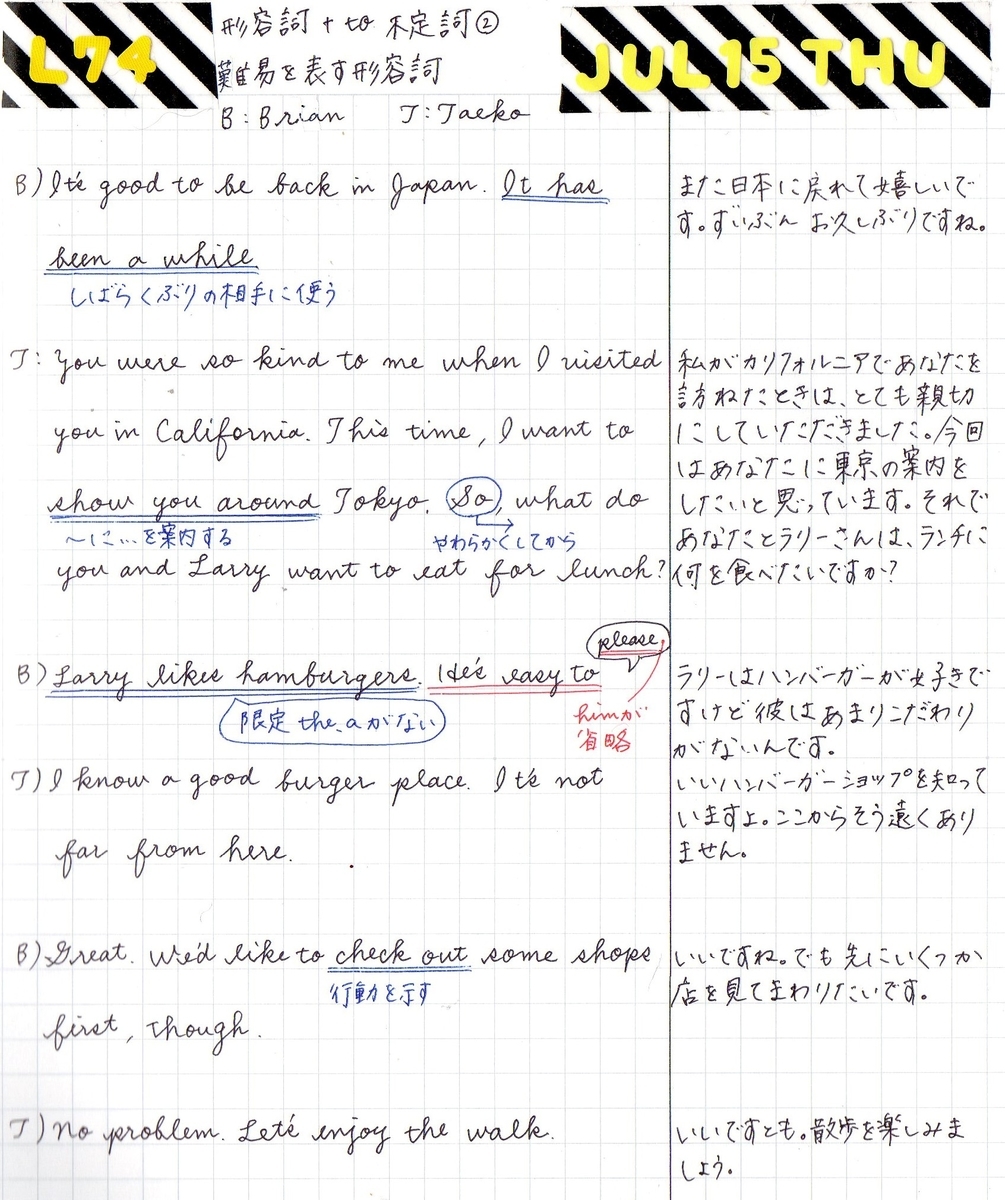 L74
形容詞 + to 不定詞②
JUL 15 THU
難易を表す形容詞
B : Brian  T : Taeko
B) It's good to be back in Japan. It has
been a while
しばらくぶりの相手に使う
また日本に戻れて嬉しいで
す。ずいぶん お久しぶりですね。
T: You were so kind to me when I visited
you in California. This time, I want to
show you around Tokyo. So, what do
〜に…を案内する
やわらかくしてから
you and Larry want to eat for lunch?
私がカリフォルニアであなたを
訪ねたときは、とても親切
にしていただきました。今回
はあなたに東京の案内を
したいと思っています。それで
あなたとラリーさんは、ランチに
何を食べたいですか?
please
B) Larry likes hamburgers. He's easy to
限定 the, a がない
himが
省略
ラリーはハンバーガーが好きで
すけど彼はあまりこだわり
がないんです。
T) I know a good burger place. It's not
far from here.
いいハンバーガーショップを知って
いますよ。ここからそう遠くあり
ません。
B) Great. We'd like to check out some shops
行動を示す
first, though.
いいですね。でも先にいくつか
店を見てまわりたいです。
T) No problem. Let's enjoy the walk.
いいですとも。散歩を楽しみま
しょう。